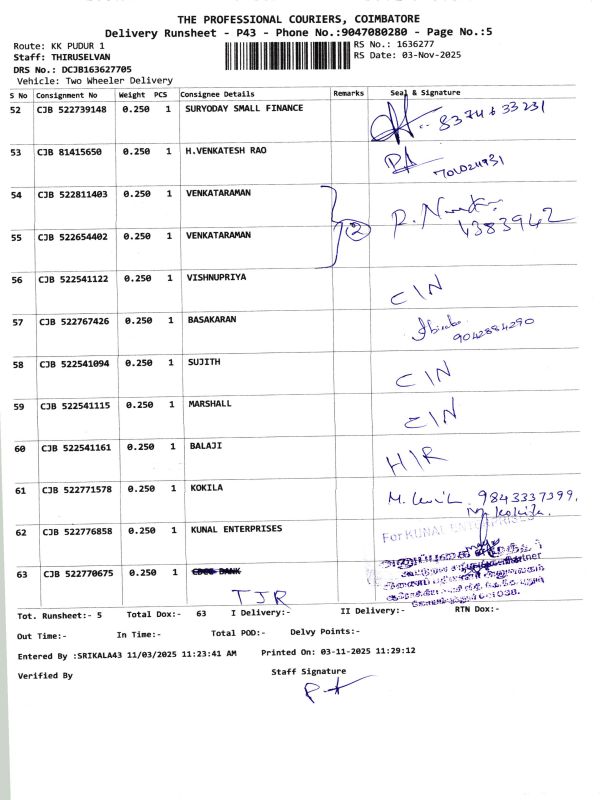 THE PROFESSIONAL COURIERS, COIMBATORE
Delivery Runsheet - P43 - Phone No.:9047080280 - Page No.:5
Route: KK PUDUR 1
RS No.: 1636277
Staff: THIRUSELVAN
RS Date: 03-Nov-2025
DRS No.: DCJB163627705
Vehicle: Two Wheeler Delivery
S No Consignment No Weight PCS Consignee Details Remarks Seal & Signature
52 CJB 522739148 0.250 1 SURYODAY SMALL FINANCE
53 CJB 81415650 0.250 1 H.VENKATESH RAO
54 CJB 522811403 0.250 1 VENKATARAMAN
2
55 CJB 522654402 0.250 1 VENKATARAMAN
56 CJB 522541122 0.250 1 VISHNUPRIYA C/N
57 CJB 522767426 0.250 1 BASAKARAN 9042884290
58 CJB 522541094 0.250 1 SUJITH C/N
59 CJB 522541115 0.250 1 MARSHALL C/N
60 CJB 522541161 0.250 1 BALAJI H/R
61 CJB 522771578 0.250 1 KOKILA M. 9843337399.
M. Kokila.
62 CJB 522776858 0.250 1 KUNAL ENTERPRISES For KUNAL ENTERPRISES
Partner
63 CJB 522770675 0.250 1
TJR
Tot. Runsheet:- 5 Total Dox:- 63 I Delivery:- II Delivery:- RTN Dox:-
Out Time:- In Time:- Total POD:- Delvy Points:-
Entered By :SRIKALA43 11/03/2025 11:23:41 AM Printed On: 03-11-2025 11:29:12
Verified By Staff Signature